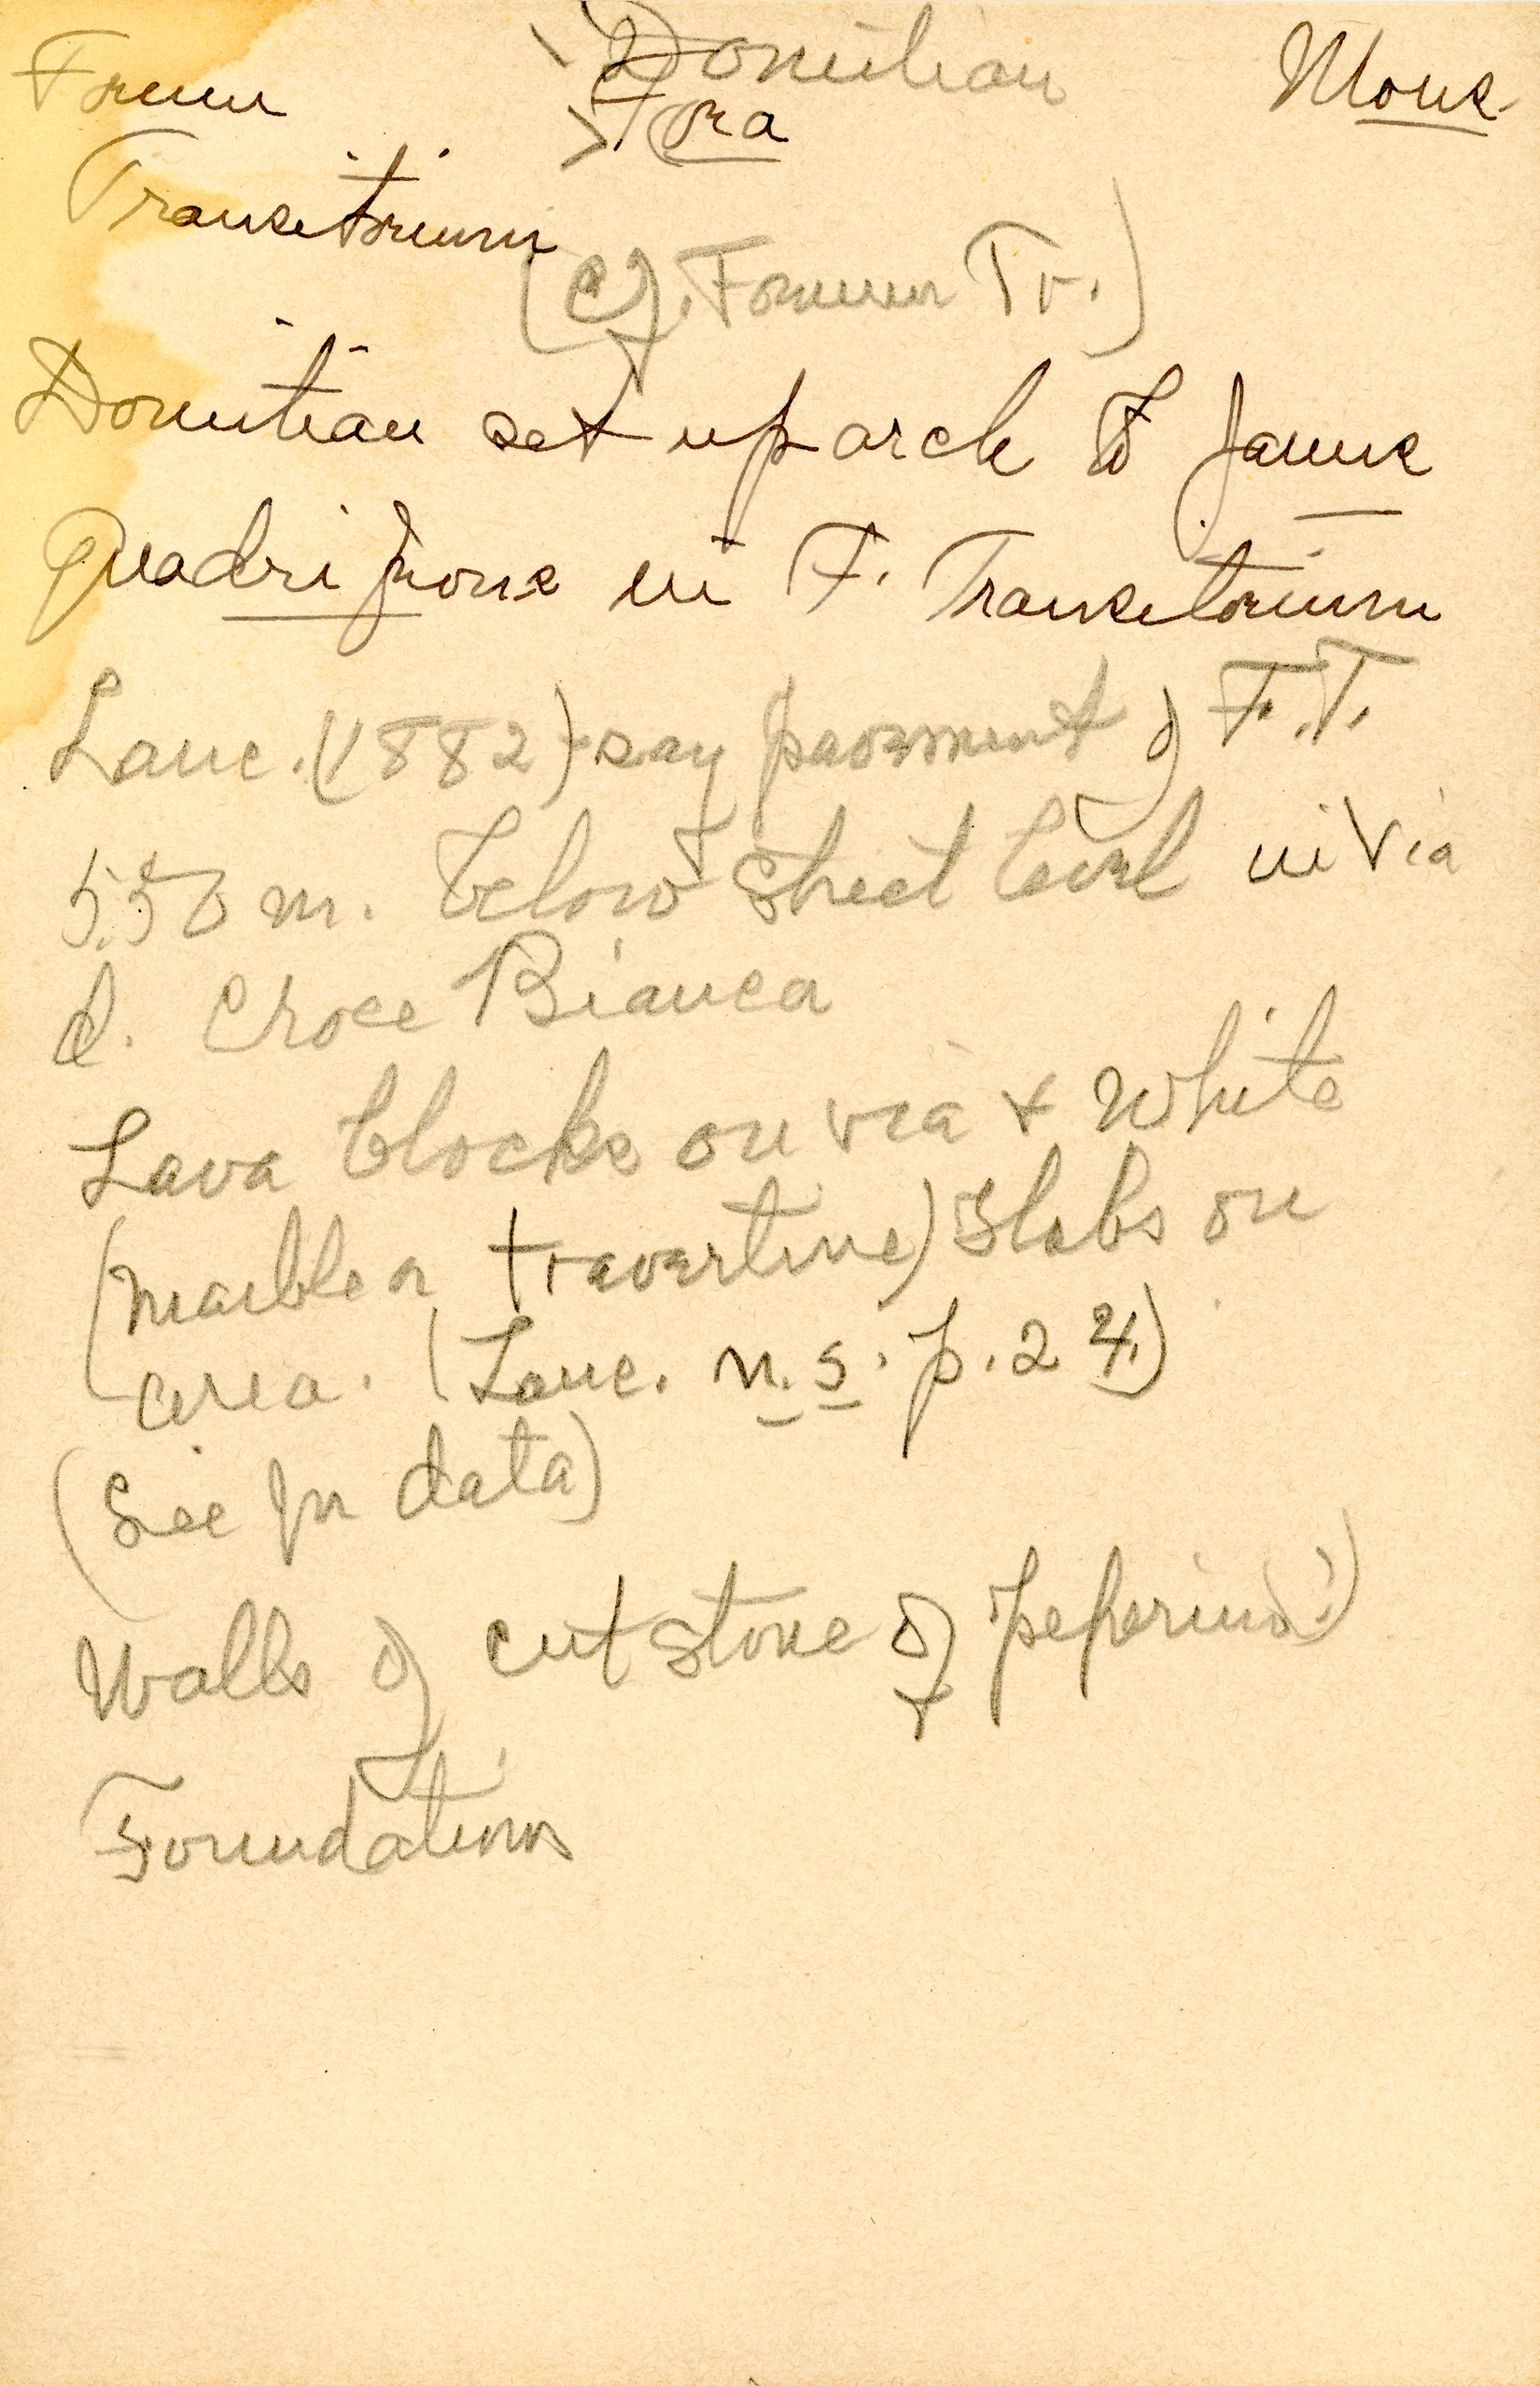 Forum Domitian Mons.
Fora
Transitorium
(cf. Forum Tr.)
Domitian set up arch to Janus
Quadrifrons in F. Transitorium
Lanc. (1882) say pavement of F.T.
5.50 m. below street level in Via
d. Croce Bianca
Lava blocks on via + White
(marble or travertine) slabs on
area. (Lanc. n.s. p. 24)
(See for data)
Walls of cut stone of peperino(?)
Foundations